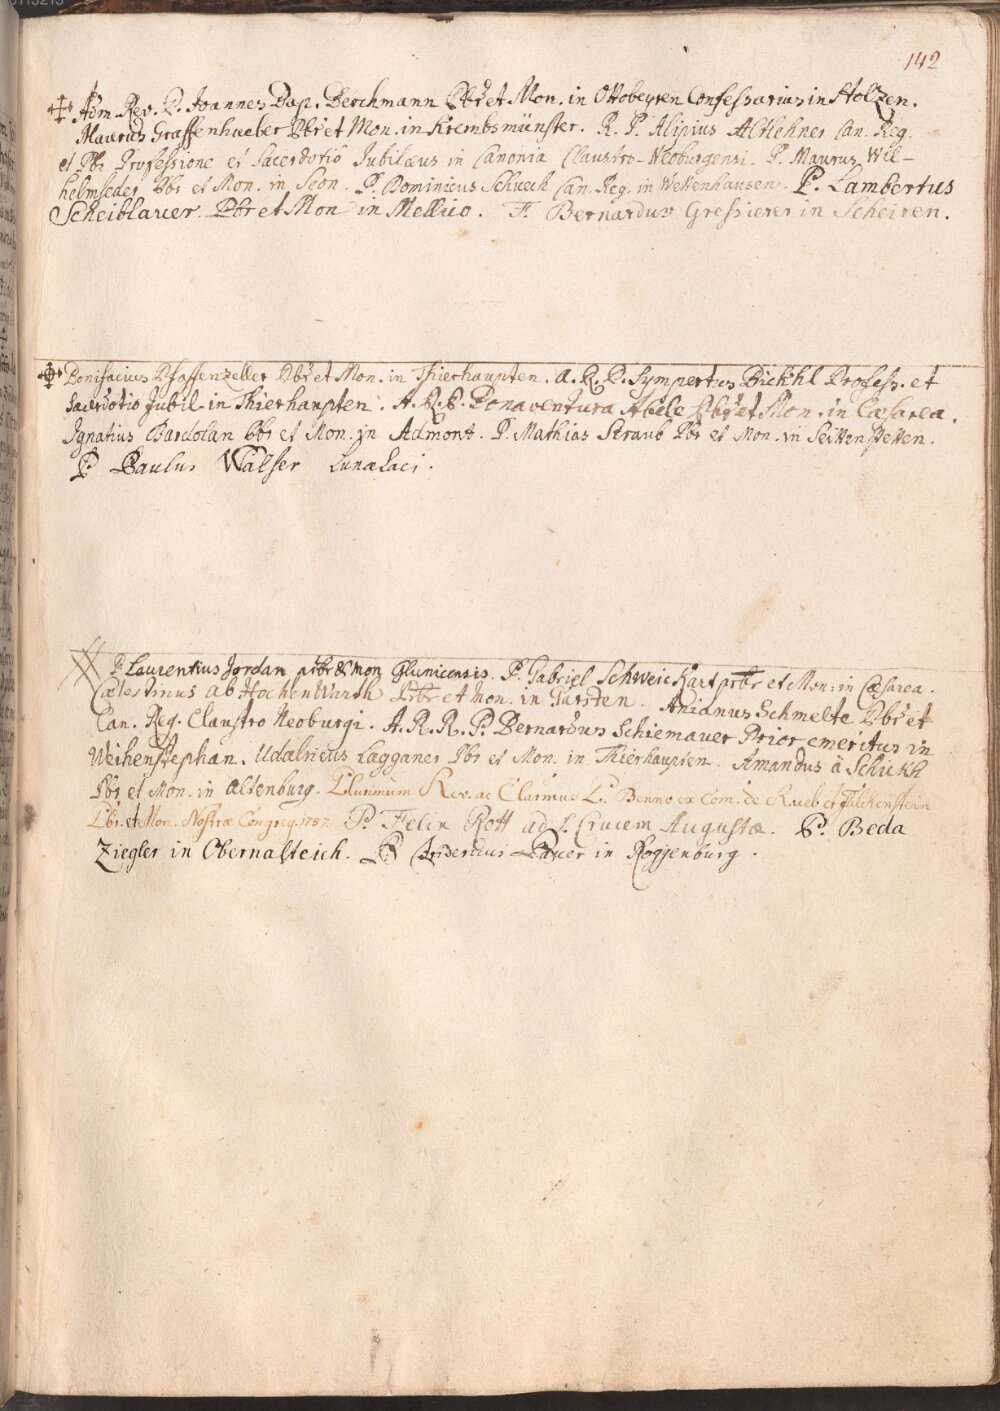 142
Adm. Rev. P. Joannes Bap. Berchmann Pbr et Mon. in Ottobeyren Confessarius in Holzen.
Maurus Graffenhueber Pbr et Mon. in Krembsmünster. R. P. Alipius Altlehner Can. Reg.
et Pbr Professione et Sacerdotio Jubilæus in Canonia Claustro-Neoburgensi. P. Maurus Wil-
helmseder Pbr et Mon. in Seon. P. Dominicus Schuech Can. Reg. in Wettenhausen. P. Lambertus
Scheiblauer Pbr et Mon in Mellico. F. Bernardus Gressierer in Scheiren.
Bonifacius Pfaffenzeller Pbr et Mon. in Thierhaupten. A. R. P. Sympertus Bickhl Profess. et
Sacerdotio Jubil. in Thierhaupten. A. R. P. Bonaventura Abele Pbr et Mon. in Cæsarea.
Ignatius Bardolan Pbr et Mon. in Admont. P. Mathias Straub Pbr et Mon. in Seittenstetten.
P. Paulus Walser Lunælaci.
P. Laurentius Jordan prbr & mon Glunicensis. P. Gabriel Schweickart prbr et Mon: in Cæsarea.
Cælestinus ab HochenWarth Prbr et Mon. in Garsten. Anianus Schmelte Pbr et
Can. Reg. Claustro Neoburgi. A. R. R. P. Bernardus Schiemauer Prior emeritus in
Weihenstephan. Udalricus Lagganer Pbr et Mon. in Thierhaupten. Amandus à Schickh
Pbr et Mon. in Altenburg. Plurimum Rev. ac Clarmus P. Benno ex Com. de Rueb et Falckenstein
Pbr. et Mon. Nostræ Congreg. 1757. P. Felix Rott ad S. Crucem Augustæ. P. Beda
Ziegler in Obernalteich. P. Pauer in Roggenburg.